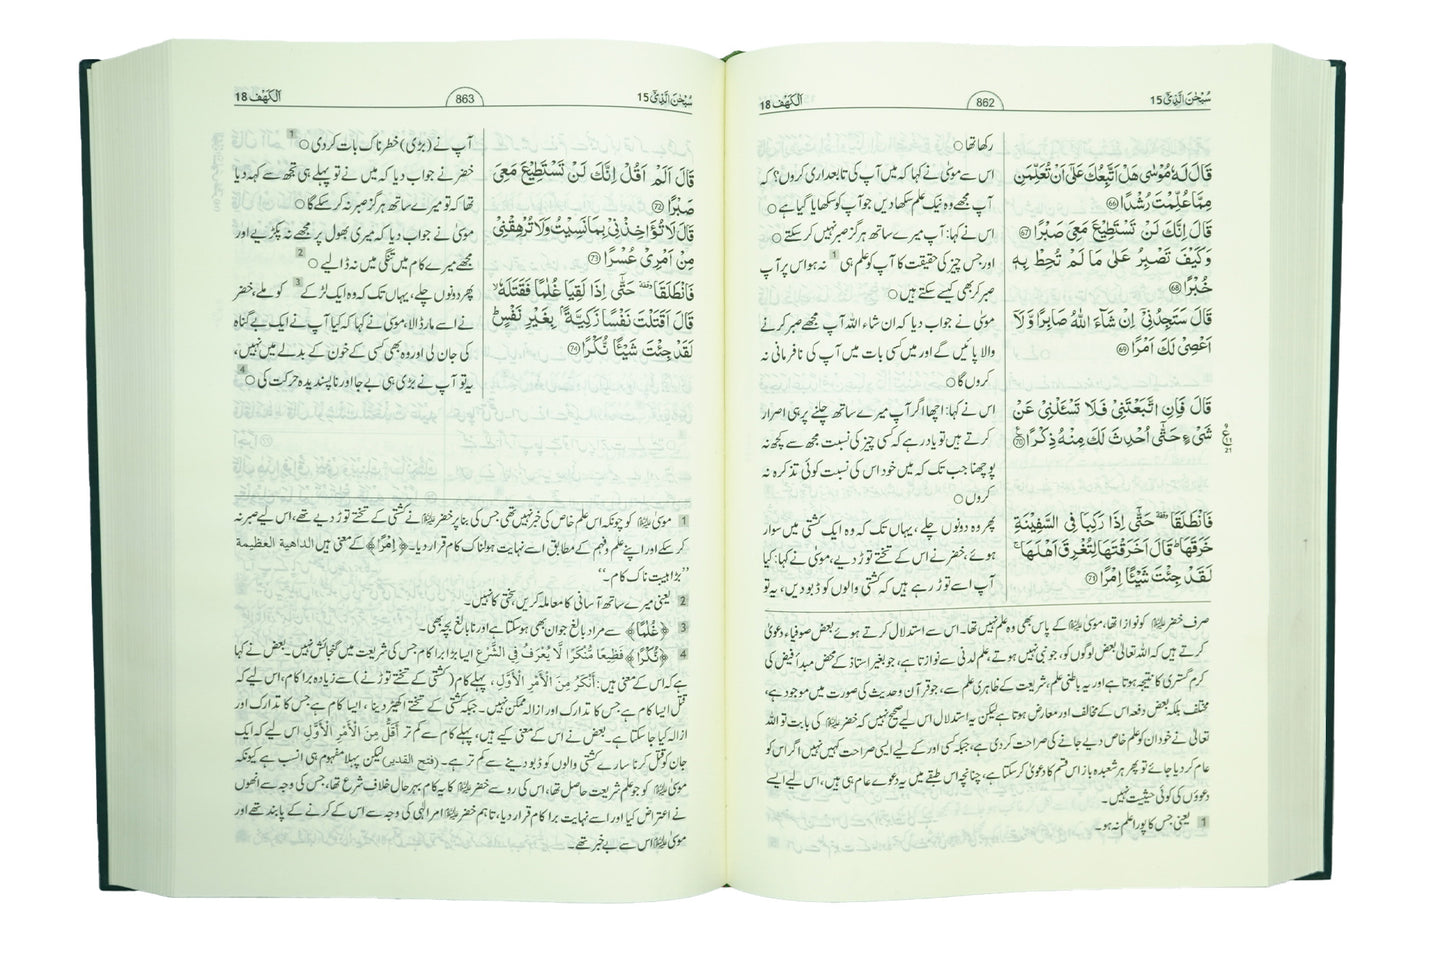 سُبْحٰنَ الَّذِیْۤ 15
862
اَلْكَهْف 18
قَالَ لَهٗ مُوْسٰى هَلْ اَتَّبِعُكَ عَلٰۤى اَنْ تُعَلِّمَنِ
مِمَّا عُلِّمْتَ رُشْدًا ﴿66﴾
قَالَ اِنَّكَ لَنْ تَسْتَطِیْعَ مَعِیَ صَبْرًا ﴿67﴾
وَكَیْفَ تَصْبِرُ عَلٰى مَا لَمْ تُحِطْ بِهٖ
خُبْرًا ﴿68﴾
قَالَ سَتَجِدُنِیْۤ اِنْ شَآءَ اللّٰهُ صَابِرًا وَّلَاۤ
اَعْصِیْ لَكَ اَمْرًا ﴿69﴾
قَالَ فَاِنِ اتَّبَعْتَنِیْ فَلَا تَسْـَٔلْنِیْ عَنْ
شَیْءٍ حَتّٰۤى اُحْدِثَ لَكَ مِنْهُ ذِكْرًا ﴿70﴾
ع
21
فَانْطَلَقَا ۥ حَتّٰۤى اِذَا رَكِبَا فِی السَّفِیْنَةِ
خَرَقَهَا ؕ قَالَ اَخَرَقْتَهَا لِتُغْرِقَ اَهْلَهَا ۚ
لَقَدْ جِئْتَ شَیْـًٔا اِمْرًا ﴿71﴾
رکھا تھا ○
اس سے موسیٰ نے کہا کہ میں آپ کی تابعداری کروں؟ کہ
آپ مجھے وہ نیک علم سکھا دیں جو آپ کو سکھایا گیا ہے ○
اس نے کہا: آپ میرے ساتھ ہرگز صبر نہیں کر سکتے ○
اور جس چیز کی حقیقت کا آپ کو علم ہی 1 نہ ہو اس پر آپ
صبر کر بھی کیسے سکتے ہیں ○
موسیٰ نے جواب دیا کہ ان شاء اللہ آپ مجھے صبر کرنے
والا پائیں گے اور میں کسی بات میں آپ کی نافرمانی نہ
کروں گا ○
اس نے کہا: اچھا اگر آپ میرے ساتھ چلنے پر ہی اصرار
کرتے ہیں تو یاد رہے کہ کسی چیز کی نسبت مجھ سے کچھ نہ
پوچھنا جب تک کہ میں خود اس کی نسبت کوئی تذکرہ نہ
کروں ○
پھر وہ دونوں چلے، یہاں تک کہ وہ ایک کشتی میں سوار
ہوئے، خضر نے اس کے تختے توڑ دیے، موسیٰ نے کہا: کیا
آپ اسے توڑ رہے ہیں کہ کشتی والوں کو ڈبو دیں، یہ تو
صرف خضر علیہ السلام کو نوازا تھا، موسیٰ علیہ السلام کے پاس بھی وہ علم نہیں تھا۔ اس سے استدلال کرتے ہوئے بعض صوفیاء دعویٰ
کرتے ہیں کہ اللہ تعالیٰ بعض لوگوں کو، جو نبی نہیں ہوتے، علم لدنی سے نوازتا ہے، جو بغیر استاذ کے محض مبدأ فیض کی
کرم گستری کا نتیجہ ہوتا ہے اور یہ باطنی علم، شریعت کے ظاہری علم سے، جو قرآن و حدیث کی صورت میں موجود ہے،
مختلف بلکہ بعض دفعہ اس کے مخالف اور معارض ہوتا ہے لیکن یہ استدلال اس لیے صحیح نہیں کہ خضر علیہ السلام کی بابت تو اللہ
تعالیٰ نے خود ان کو علم خاص دیے جانے کی صراحت کر دی ہے، جبکہ کسی اور کے لیے ایسی صراحت کہیں نہیں اگر اس کو
عام کر دیا جائے تو پھر ہر شعبدہ باز اس قسم کا دعویٰ کر سکتا ہے، چنانچہ اس طبقے میں یہ دعوے عام ہی ہیں، اس لیے ایسے
دعووں کی کوئی حیثیت نہیں۔
1 یعنی جس کا پورا علم نہ ہو۔
سُبْحٰنَ الَّذِیْۤ 15
863
اَلْكَهْف 18
قَالَ اَلَمْ اَقُلْ اِنَّكَ لَنْ تَسْتَطِیْعَ مَعِیَ
صَبْرًا ﴿72﴾
قَالَ لَا تُؤَاخِذْنِیْ بِمَا نَسِیْتُ وَلَا تُرْهِقْنِیْ
مِنْ اَمْرِیْ عُسْرًا ﴿73﴾
فَانْطَلَقَا ۥ حَتّٰۤى اِذَا لَقِیَا غُلٰمًا فَقَتَلَهٗ ۙ
قَالَ اَقَتَلْتَ نَفْسًا زَكِیَّةًۢ بِغَیْرِ نَفْسٍ ؕ
لَقَدْ جِئْتَ شَیْـًٔا نُّكْرًا ﴿74﴾
آپ نے (بڑی) خطرناک بات کر دی ○ 1
خضر نے جواب دیا کہ میں نے تو پہلے ہی تجھ سے کہہ دیا
تھا کہ تو میرے ساتھ ہرگز صبر نہ کر سکے گا ○
موسیٰ نے جواب دیا کہ میری بھول پر مجھے نہ پکڑیے اور
مجھے میرے کام میں تنگی میں نہ ڈالیے ○ 2
پھر دونوں چلے، یہاں تک کہ وہ ایک لڑکے 3 کو ملے، خضر
نے اسے مار ڈالا، موسیٰ نے کہا کہ کیا آپ نے ایک بے گناہ
کی جان لی اور وہ بھی کسی کے خون کے بدلے میں نہیں،
یہ تو آپ نے بڑی ہی بے جا اور ناپسندیدہ حرکت کی ○ 4
1 موسیٰ علیہ السلام کو چونکہ اس علم خاص کی خبر نہیں تھی جس کی بنا پر خضر علیہ السلام نے کشتی کے تختے توڑ دیے تھے، اس لیے صبر نہ
کر سکے اور اپنے علم و فہم کے مطابق اسے نہایت ہولناک کام قرار دیا۔ ﴿اِمْرًا﴾ کے معنی ہیں الداهية العظيمة
”بڑا ہیبت ناک کام۔“
2 یعنی میرے ساتھ آسانی کا معاملہ کریں، سختی کا نہیں۔
3 ﴿غُلٰمًا﴾ سے مراد بالغ جوان بھی ہو سکتا ہے اور نابالغ بچہ بھی۔
4 ﴿نُّكْرًا﴾ فَظِيعًا مُّنْكَرًا لَّا يُعْرَفُ فِي الشَّرْعِ ایسا بڑا برا کام جس کی شریعت میں گنجائش نہیں۔ بعض نے کہا
ہے کہ اس کے معنی ہیں: أَنْكَرُ مِنَ الْأَمْرِ الْأَوَّلِ، پہلے کام (کشتی کے تختے توڑنے) سے زیادہ برا کام، اس لیے کہ
قتل ایسا کام ہے جس کا تدارک اور ازالہ ممکن نہیں۔ جبکہ کشتی کے تختے اکھیڑ دینا، ایسا کام ہے جس کا تدارک اور
ازالہ کیا جا سکتا ہے۔ بعض نے اس کے معنی کیے ہیں، پہلے کام سے کم تر أَقَلُّ مِنَ الْأَمْرِ الْأَوَّلِ اس لیے کہ ایک
جان کو قتل کرنا سارے کشتی والوں کو ڈبو دینے سے کم تر ہے۔ (فتح القدیر) لیکن پہلا مفہوم ہی انسب ہے کیونکہ
موسیٰ علیہ السلام کو جو علم شریعت حاصل تھا، اس کی رو سے خضر علیہ السلام کا یہ کام بہر حال خلاف شرع تھا، جس کی وجہ سے انھوں
نے اعتراض کیا اور اسے نہایت برا کام قرار دیا، تاہم خضر علیہ السلام امر الٰہی کی وجہ سے اس کے کرنے کے پابند تھے اور
موسیٰ علیہ السلام اس سے بے خبر تھے۔